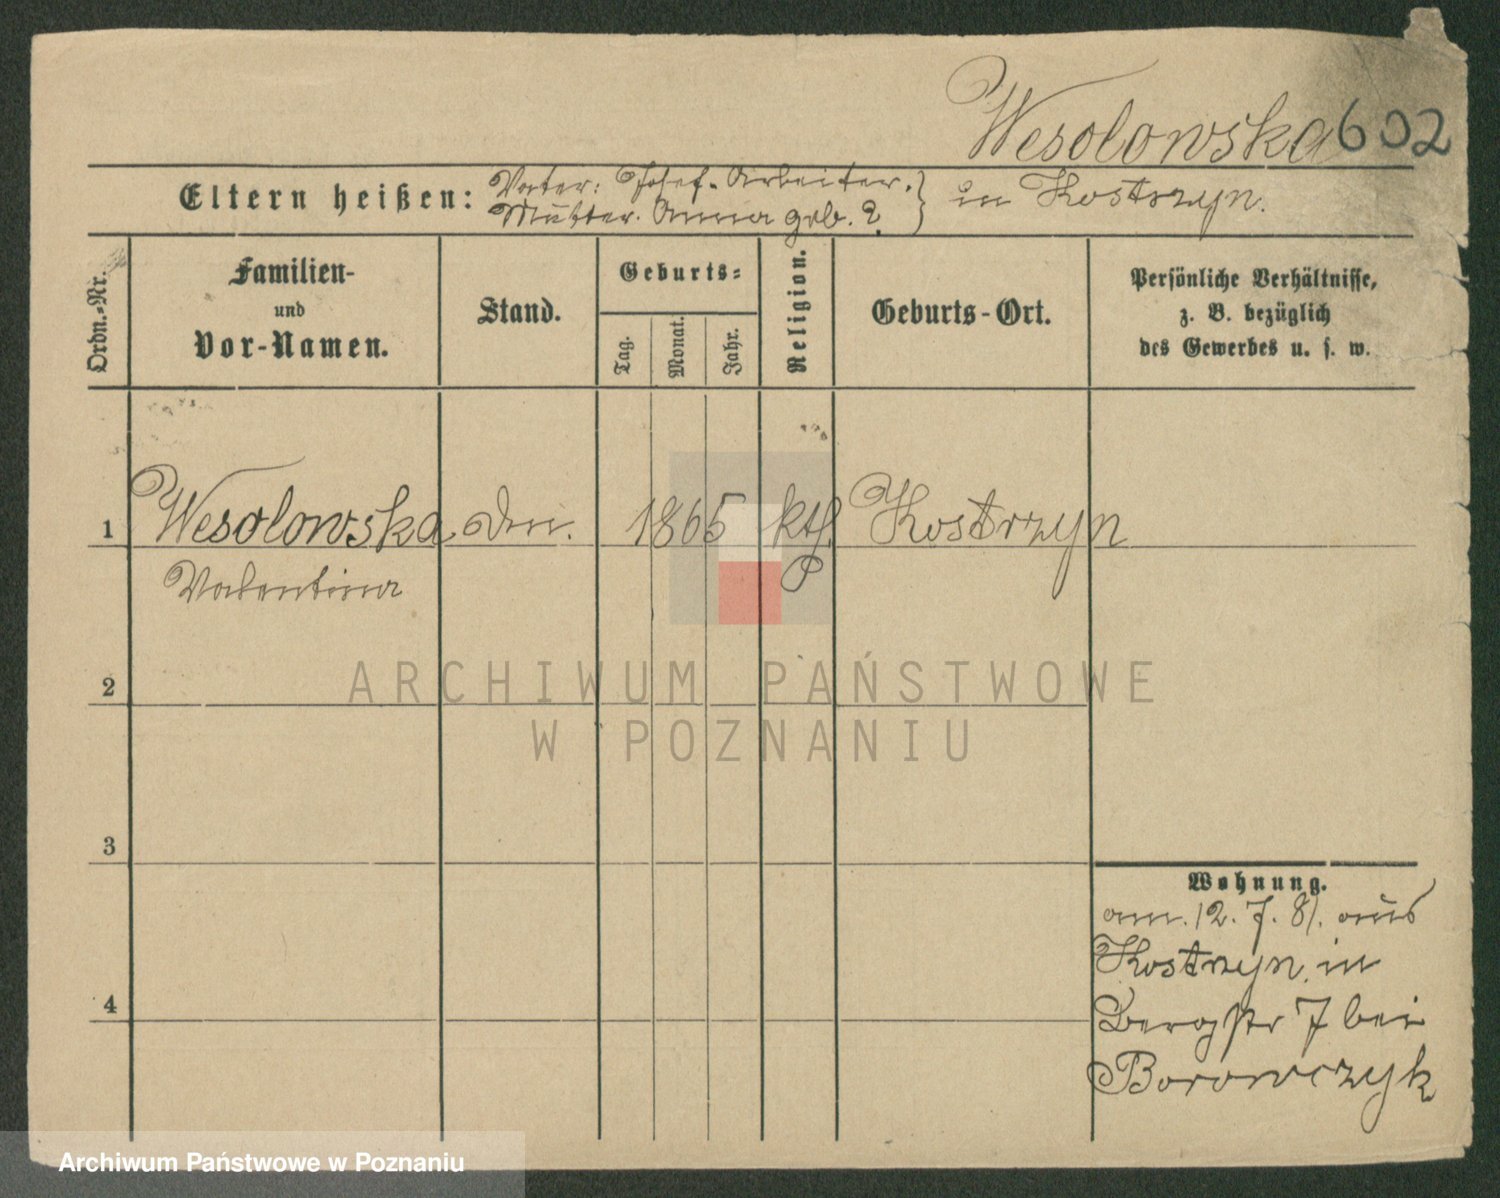 Wesolowska 602
Eltern heißen: Vater: Josef. Arbeiter. } in Kostrzyn.
Mutter. Anna geb. ?
Ordn.-Nr.
Familien-
und
Vor-Namen.
Stand.
Geburts-
Tag.
Monat.
Jahr.
Religion.
Geburts-Ort.
Persönliche Verhältnisse,
z. B. bezüglich
des Gewerbes u. s. w.
1 Wesolowska 1865 kth. Kostrzyn
Valentina
2
3
4
Wohnung.
am. 12. 7. 81. aus
Kostrzyn, in
Bergstr 7 bei
Borowczyk
ARCHIWUM PAŃSTWOWE
W POZNANIU
Archiwum Państwowe w Poznaniu